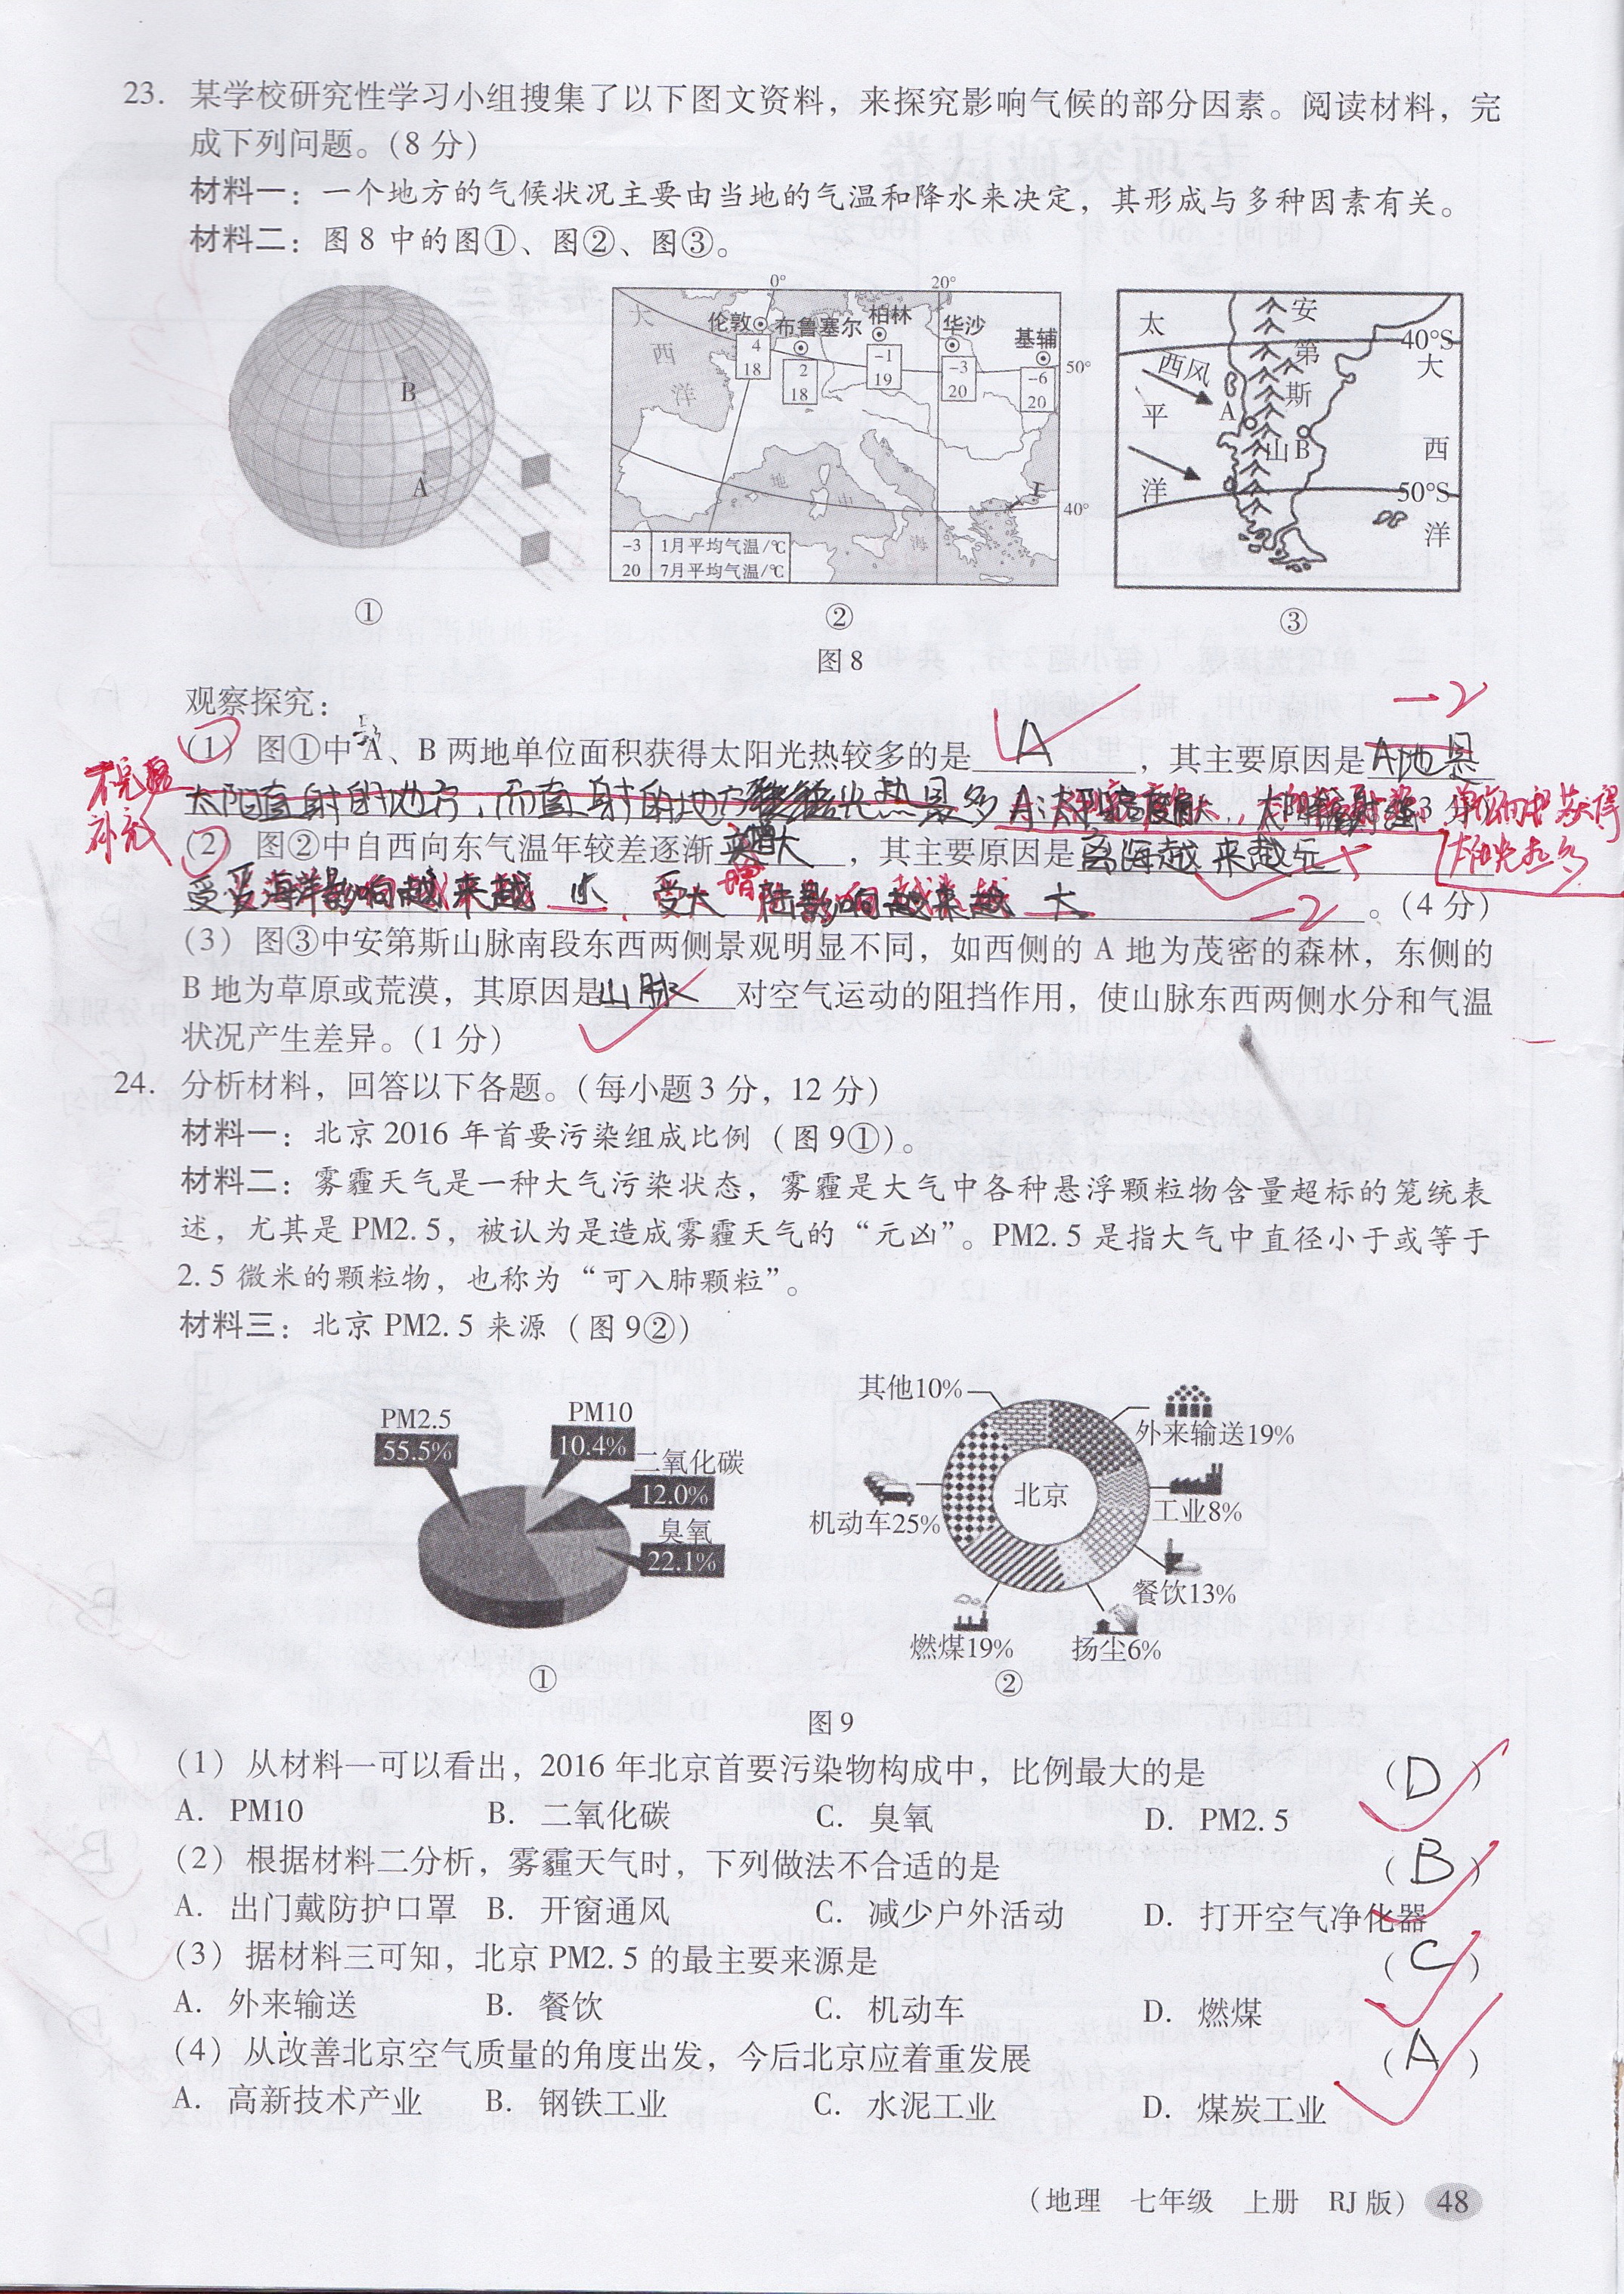 23. 某学校研究性学习小组搜集了以下图文资料，来探究影响气候的部分因素。阅读材料，完
成下列问题。（8 分）
材料一：一个地方的气候状况主要由当地的气温和降水来决定，其形成与多种因素有关。
材料二：图 8 中的图①、图②、图③。
B
A
①
0°
20°
大
西
洋
伦敦
4
18
布鲁塞尔
2
18
柏林
-1
19
华沙
-3
20
基辅
-6
20
50°
40°
地
中
海
-3 1月平均气温/℃
20 7月平均气温/℃
②
太
平
洋
西风
A
安
第
斯
山
B
40°S
大
西
50°S
洋
③
图 8
观察探究：
-2
（1）图①中 A、B 两地单位面积获得太阳光热较多的是 A ，其主要原因是 A地是
不完整
补充
太阳直射的地方，而直射的地方 光热最多 3 分
单位面积获得
太阳光热多
（2）图②中自西向东气温年较差逐渐 增大 ，其主要原因是 离海越来越远
受海洋影响越来越小，受大陆影响越来越大 -2 。（4 分）
增
（3）图③中安第斯山脉南段东西两侧景观明显不同，如西侧的 A 地为茂密的森林，东侧的
B 地为草原或荒漠，其原因是 山脉 对空气运动的阻挡作用，使山脉东西两侧水分和气温
状况产生差异。（1 分）
24. 分析材料，回答以下各题。（每小题 3 分，12 分）
材料一：北京 2016 年首要污染组成比例（图 9①）。
材料二：雾霾天气是一种大气污染状态，雾霾是大气中各种悬浮颗粒物含量超标的笼统表
述，尤其是 PM2. 5，被认为是造成雾霾天气的“元凶”。PM2. 5 是指大气中直径小于或等于
2. 5 微米的颗粒物，也称为“可入肺颗粒”。
材料三：北京 PM2. 5 来源（图 9②）
PM2.5
55.5%
PM10
10.4%
二氧化碳
12.0%
臭氧
22.1%
①
其他10%
外来输送19%
机动车25%
北京
工业8%
餐饮13%
燃煤19%
扬尘6%
②
图 9
（1）从材料一可以看出，2016 年北京首要污染物构成中，比例最大的是 （ D ）
A. PM10 B. 二氧化碳 C. 臭氧 D. PM2. 5
（2）根据材料二分析，雾霾天气时，下列做法不合适的是 （ B ）
A. 出门戴防护口罩 B. 开窗通风 C. 减少户外活动 D. 打开空气净化器
（3）据材料三可知，北京 PM2. 5 的最主要来源是 （ C ）
A. 外来输送 B. 餐饮 C. 机动车 D. 燃煤
（4）从改善北京空气质量的角度出发，今后北京应着重发展 （ A ）
A. 高新技术产业 B. 钢铁工业 C. 水泥工业 D. 煤炭工业
（地理 七年级 上册 RJ 版） 48